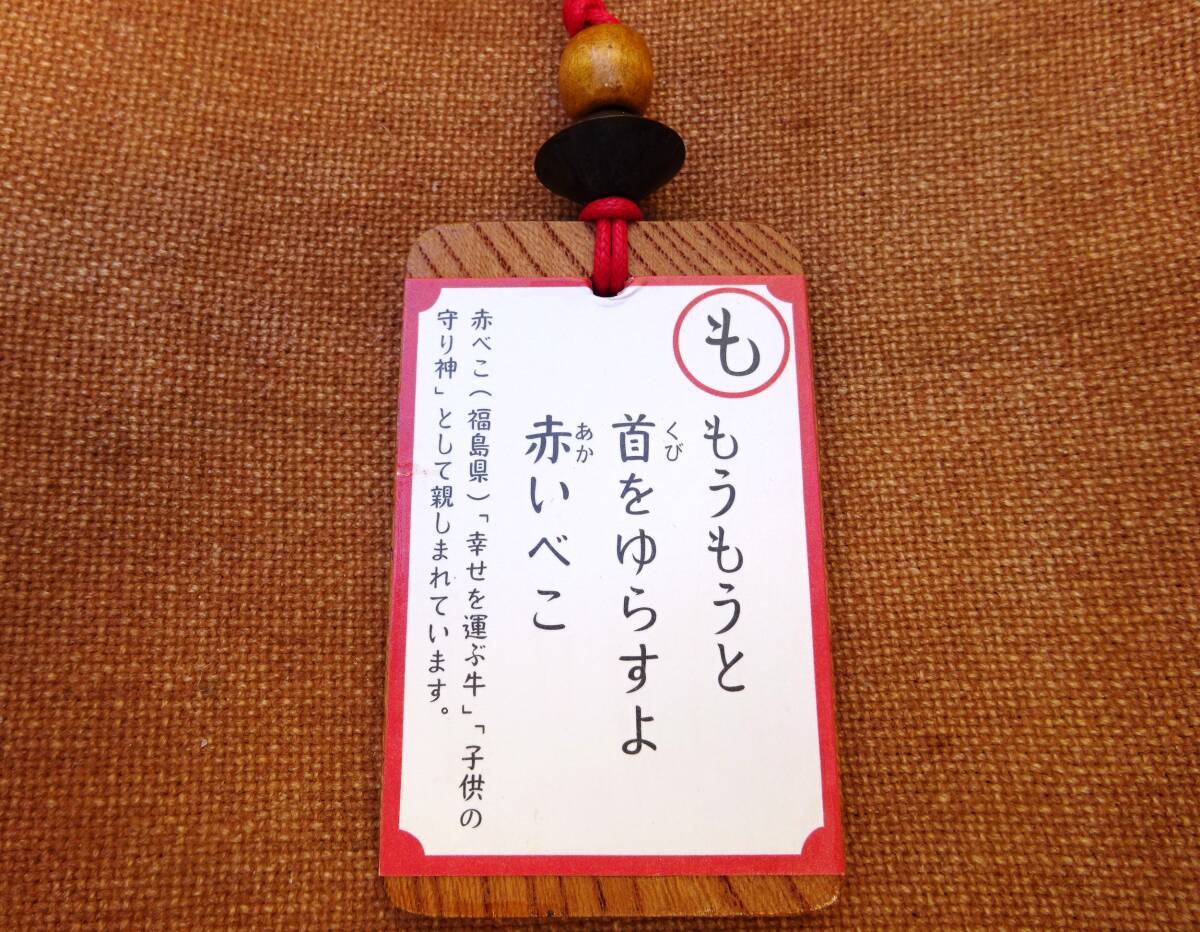 も
もうもうと
首をゆらすよ
くび
赤いべこ
あか
赤べこ(福島県)「幸せを運ぶ牛」「子供の
守り神」として親しまれています。